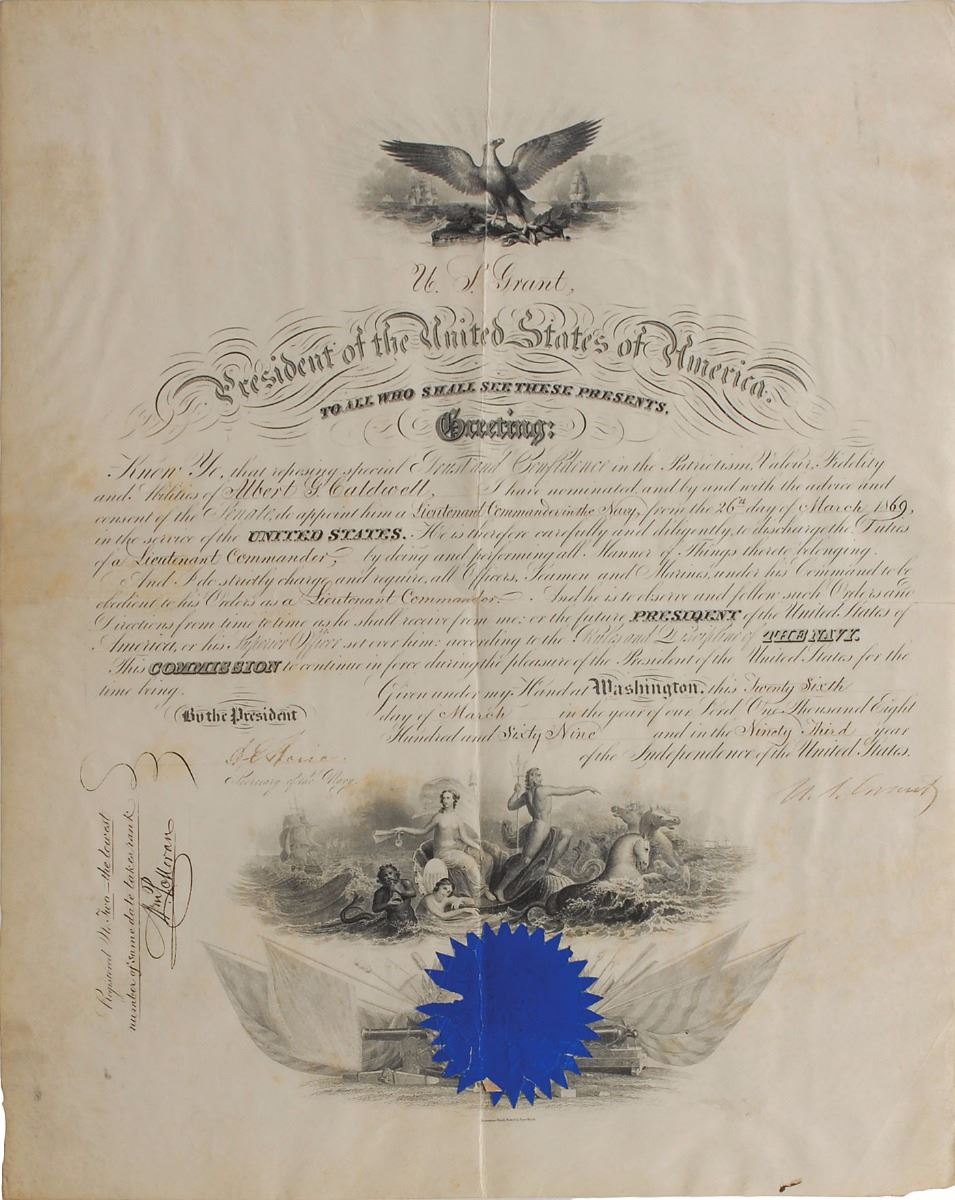 U. S. Grant,
President of the United States of America.
TO ALL WHO SHALL SEE THESE PRESENTS,
Greeting:
Know Ye, that reposing special Trust and Confidence in the Patriotism, Valour, Fidelity
and Abilities of Albert G. Caldwell, I have nominated, and by and with the advice and
consent of the Senate, do appoint him a Lieutenant Commander in the Navy, from the 26th day of March 1869,
in the service of the UNITED STATES. He is therefore carefully and diligently, to discharge the Duties
of a Lieutenant Commander, by doing and performing all Manner of Things thereto belonging.
And I do strictly charge, and require, all Officers, Seamen and Marines, under his Command to be
obedient to his Orders as a Lieutenant Commander. And he is to observe and follow such Orders and
Directions from time to time as he shall receive from me; or the future PRESIDENT of the United States of
America, or his Superior Officer set over him; according to the Rules and Discipline of THE NAVY.
This COMMISSION to continue in force during the pleasure of the President of the United States for the
time being.
Given under my Hand at Washington, this Twenty Sixth
day of March in the year of our Lord One Thousand Eight
Hundred and Sixty Nine and in the Ninety Third year
of the Independence of the United States.
By the President
U. S. Grant
Secretary of the Navy.
Registered No Two - the lowest
number of same date takes rank
Moran